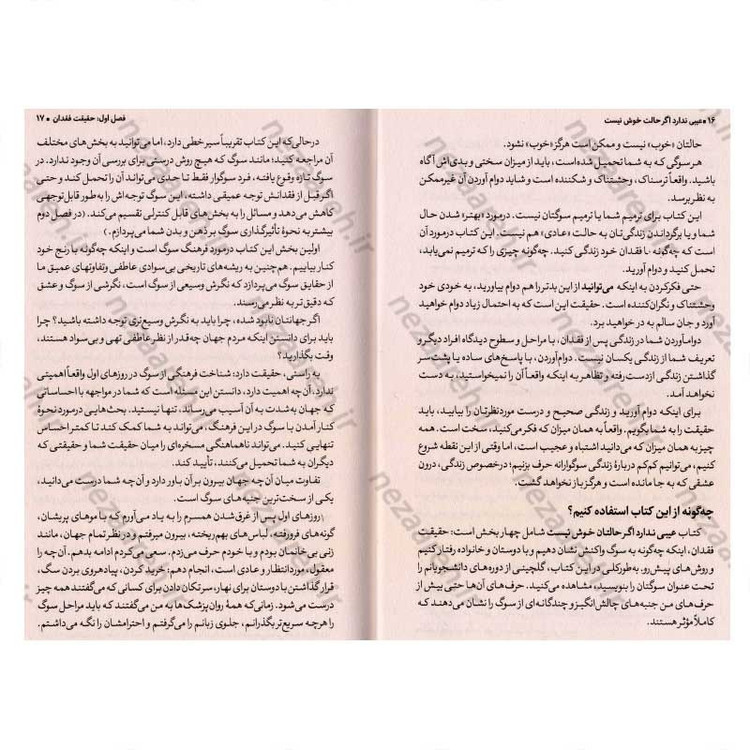 ۱۶ • عیبی ندارد اگر حالت خوش نیست
حالتان «خوب» نیست و ممکن است هرگز «خوب» نشود.
هر سوگی که به شما تحمیل شده است، باید از میزان سختی و بدی‌اش آگاه
باشید. واقعاً ترسناک، وحشتناک و شکننده است و شاید دوام آوردن آن غیرممکن
به نظر برسد.
این کتاب برای ترمیم شما یا ترمیم سوگتان نیست. درمورد «بهتر» شدن حال
شما یا برگرداندن زندگی‌تان به حالت «عادی» هم نیست. این کتاب درمورد آن
است که چه‌گونه با فقدان خود زندگی کنید. چه‌گونه چیزی را که ترمیم نمی‌یابد،
تحمل کنید و دوام آورید.
حتی فکر کردن به اینکه می‌توانید از این بدتر را هم دوام بیاورید، به خودی خود
وحشتناک و نگران‌کننده است. حقیقت این است که به احتمال زیاد دوام خواهید
آورد و جان سالم به در خواهید برد.
دوام‌آوردن شما در زندگی پس از فقدان، با مراحل و سطوح دیدگاه افراد دیگر و
تعریف شما از زندگی یکسان نیست. دوام‌آوردن، با پاسخ‌های ساده یا پشت‌سر
گذاشتن زندگی ازدست‌رفته و تظاهر به اینکه واقعاً آن را نمی‌خواستید، به دست
نخواهد آمد.
برای اینکه دوام آورید و زندگی صحیح و درست موردنظرتان را بیابید، باید
حقیقت را به شما بگویم. واقعاً به همان میزان که فکر می‌کنید، سخت است. همه
چیز به همان میزان که می‌دانید اشتباه و عجیب است، اما وقتی از این نقطه شروع
کنیم، می‌توانیم کم‌کم دربارهٔ زندگی سوگوارانه حرف بزنیم؛ درخصوص زندگی، درون
عشقی که به جا مانده است و هرگز باز نخواهد گشت.
چه‌گونه از این کتاب استفاده کنیم؟
کتاب عیبی ندارد اگر حالتان خوش نیست شامل چهار بخش است: حقیقت
فقدان، اینکه چه‌گونه به سوگ واکنش نشان دهیم و با دوستان و خانواده رفتار کنیم
و روش‌های پیش‌رو. به‌طورکلی در این کتاب، گلچینی از دوره‌های دانشجویانم را
تحت عنوان سوگتان را بنویسید، مشاهده می‌کنید. حرف‌های آن‌ها حتی بیش از
حرف‌های من جنبه‌های چالش‌انگیز و چندگانه‌ای از سوگ را نشان می‌دهند که
کاملاً مؤثر هستند.
فصل اول: حقیقت فقدان • ۱۷
درحالی‌که این کتاب تقریباً سیر خطی دارد، اما می‌توانید به بخش‌های مختلف
آن مراجعه کنید؛ مانند سوگ که هیچ روش درستی برای بررسی آن وجود ندارد. در
سوگ تازه وقوع یافته، فرد سوگوار فقط تا حدی می‌تواند آن را تحمل کند و حتی
اگر قبل از فقدانش توجه عمیقی داشته، این سوگ توجه‌اش را به‌طور قابل‌توجهی
کاهش می‌دهد و مسائل را به بخش‌های قابل کنترلی تقسیم می‌کند. (در فصل دوم
بیشتر به نحوهٔ تأثیرگذاری سوگ بر ذهن و بدن شما می‌پردازم.)
اولین بخش این کتاب درمورد فرهنگ سوگ است و اینکه چه‌گونه با رنج خود
کنار بیاییم. هم‌چنین به ریشه‌های تاریخی بی‌سوادی عاطفی و تفاوتهای عمیق ما
از حقایق سوگ می‌پردازد که نگرش وسیعی از سوگ است، نگرشی از سوگ و عشق
که دقیق‌تر به نظر می‌رسند.
اگر جهانتان نابود شده، چرا باید به نگرش وسیع‌تری توجه داشته باشید؟ چرا
باید برای دانستن اینکه مردم جهان چه‌قدر از نظر عاطفی تهی و بی‌سواد هستند،
وقت بگذارید؟
به راستی، حقیقت دارد: شناخت فرهنگی از سوگ در روزهای اول واقعاً اهمیتی
ندارد، آن چه اهمیت دارد، دانستن این مسئله است که شما در مواجهه با احساساتی
که جهان به‌شدت به آن آسیب می‌رساند، تنها نیستید. بحث‌هایی درمورد نحوهٔ
کنار آمدن با سوگ در این فرهنگ، می‌تواند به شما کمک کند تا کمتر احساس
تنهایی کنید. می‌تواند ناهماهنگی مسخره‌ای را میان حقیقت شما و حقیقتی که
دیگران به شما تحمیل می‌کنند، تأیید کند.
تفاوت میان آن چه جهان بیرون بر آن باور دارد و آن چه شما درست می‌دانید،
یکی از سخت‌ترین جنبه‌های سوگ است.
روزهای اول پس از غرق‌شدن همسرم را به یاد می‌آورم که با موهای پریشان،
گونه‌های فرورفته، لباس‌های بهم‌ریخته، بیرون میرفتم و در نظر تمام جهان، مانند
زنی بی‌خانمان بودم و با خودم حرف می‌زدم. سعی می‌کردم ادامه بدهم. آن چه را
معقول، موردانتظار و عادی است، انجام دهم: خرید کردن، پیاده‌روی بردن سگ،
قرار گذاشتن با دوستان برای نهار، سر تکان دادن برای کسانی که می‌گفتند همه چیز
درست می‌شود. زمانی‌که همهٔ روان‌پزشک‌ها به من می‌گفتند که باید مراحل سوگ
را هرچه سریع‌تر بگذرانم، جلوی زبانم را می‌گرفتم و احترامشان را نگه می‌داشتم.